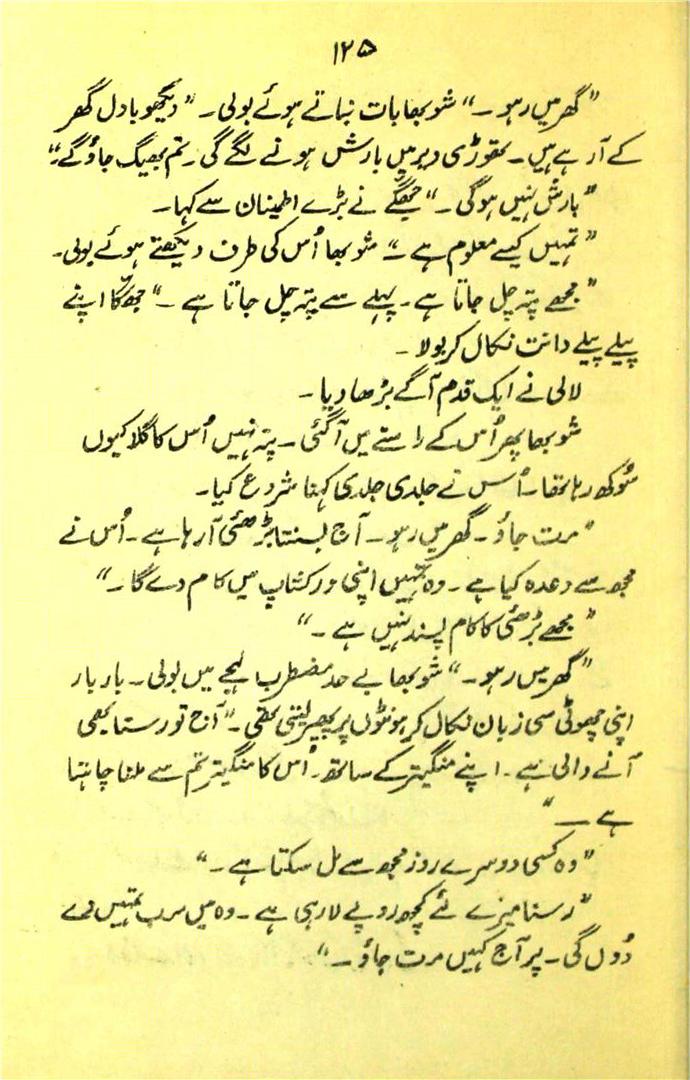 ۱۲۵
"گھر میں رہو۔" شوبھا بات بناتے ہوئے بولی۔ "دیکھو بادل گھر
کے آ رہے ہیں۔ تھوڑی دیر میں بارش ہونے لگے گی۔ تم بھیگ جاؤ گے۔"
"بارش نہیں ہوگی۔" جھگّے نے بڑے اطمینان سے کہا۔
"تمہیں کیسے معلوم ہے۔" شوبھا اُس کی طرف دیکھتے ہوئے بولی۔
"مجھے پتہ چل جاتا ہے۔ پہلے سے پتہ چل جاتا ہے۔" جھگّا اپنے
پیلے پیلے دانت نکال کر بولا۔
لالی نے ایک قدم آگے بڑھا دیا۔
شوبھا پھر اُس کے راستے میں آ گئی۔ پتہ نہیں اُس کا گلا کیوں
سُوکھ رہا تھا۔ اُس نے جلدی جلدی کہنا شروع کیا۔
"مت جاؤ۔ گھر میں رہو۔ آج بسنتا بڑھئی آ رہا ہے۔ اُس نے
مجھ سے وعدہ کیا ہے۔ وہ تمہیں اپنی ورکشاپ میں کام دے گا۔"
"مجھے بڑھئی کا کام پسند نہیں ہے۔"
"گھر میں رہو۔" شوبھا بے حد مضطرب لہجے میں بولی۔ بار بار
اپنی چھوٹی سی زبان نکال کر ہونٹوں پر پھیر لیتی تھی۔ "آج تو رستا بھی
آنے والی ہے۔ اپنے منگیتر کے ساتھ۔ اُس کا منگیتر تم سے ملنا چاہتا
ہے۔"
"وہ کسی دوسرے روز مجھ سے مل سکتا ہے۔"
"رستا میرے لئے کچھ روپے لا رہی ہے۔ وہ میں سب تمہیں دے
دُوں گی۔ پر آج کہیں مت جاؤ۔"